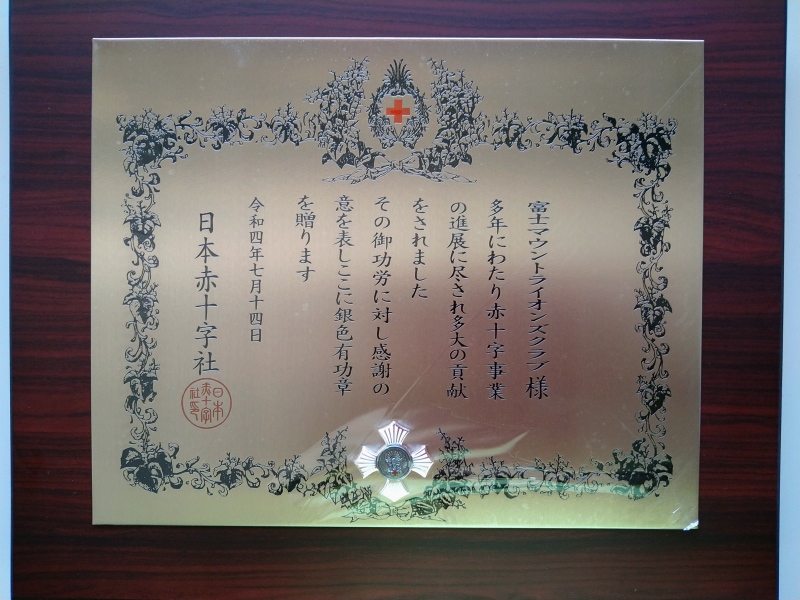 富士マウントライオンズクラブ 様
多年にわたり赤十字事業
の進展に尽され多大の貢献
をされました
その御功労に対し感謝の
意を表しここに銀色有功章
を贈ります
令和四年七月十四日
日本赤十字社
日本
赤十字
社印